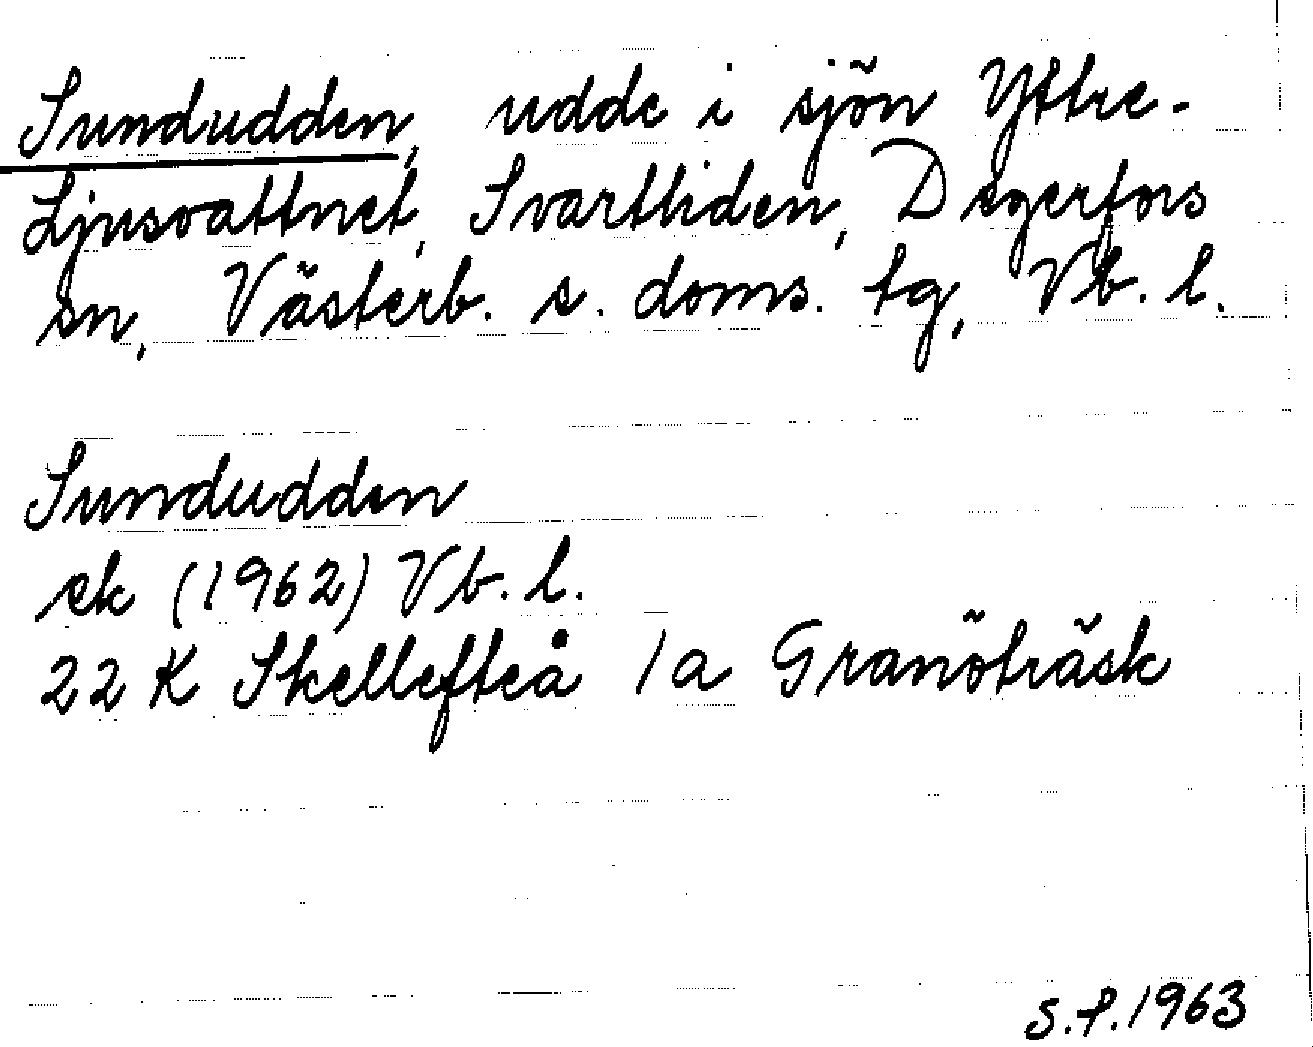 Sundudden, udde i sjön Yttre-
Ljusvattnet, Svartliden, Degerfors
sn, Västerb. s. doms. tg, Vb. l.
Sundudden
ek (1962) Vb. l.
22 K Skellefteå 1a Granöträsk
S.P. 1963